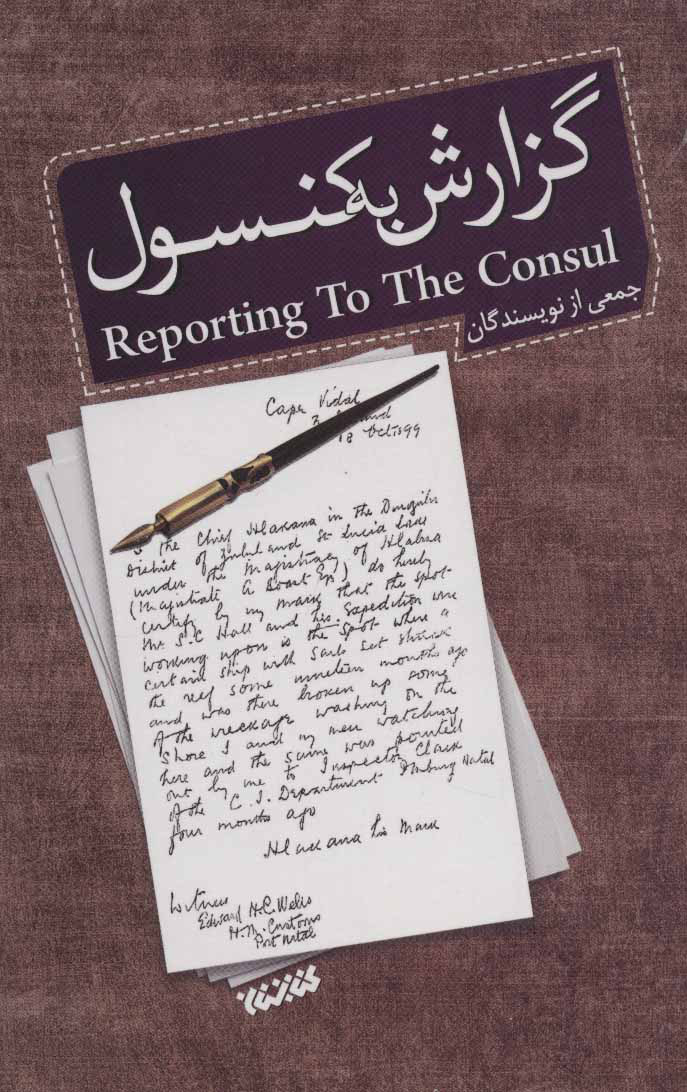 گزارش به کنسول
Reporting To The Consul
جمعی از نویسندگان
Cape Vidal
18 Oct 1899
the Chief Hlakana in the Dunguza
District of Zululand and St Lucia Lake
under the Magistracy of Hlabisa
(Magistrate A Boast Esq) do hereby
certify by my mark that the spot
Mr S.C Hall and his Expedition are
working upon is the spot where a
certain ship with sails set struck
the reef some nineteen months ago
and was there broken up some
of the wreckage washing on the
Shore I and my men watching
here and the same was pointed
out by me to Inspector Clark
of the C.I. Department Natal
four months ago
Hlakana his mark
Witness
Edward H.C. Wells
H.M. Customs
Port Natal